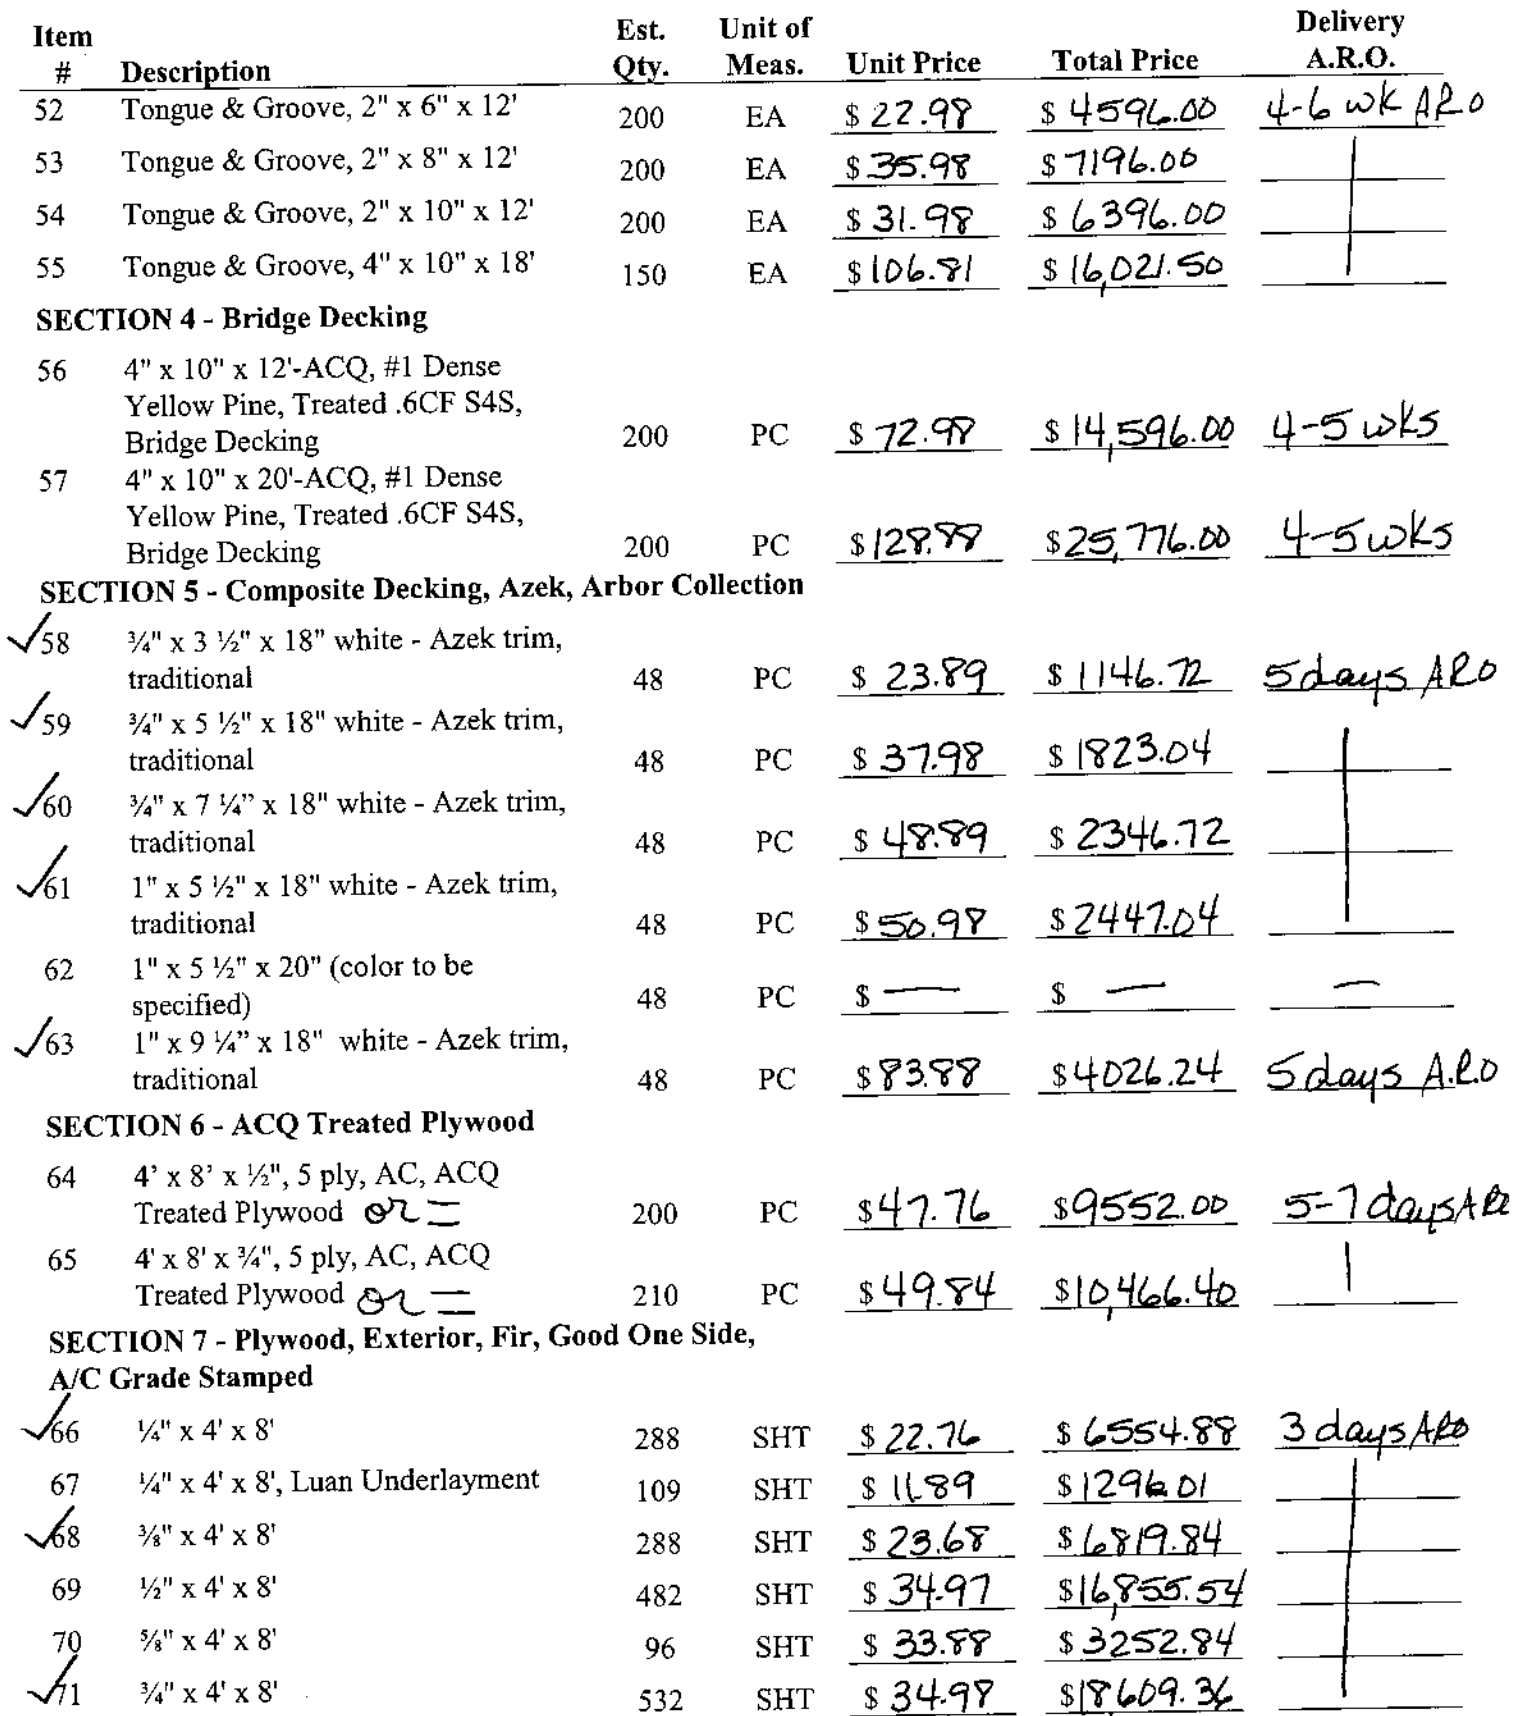 Item Est. Unit of Delivery
# Description Qty. Meas. Unit Price Total Price A.R.O.
52 Tongue & Groove, 2" x 6" x 12' 200 EA $ 22.98 $ 4596.00 4-6 wk ARO
53 Tongue & Groove, 2" x 8" x 12' 200 EA $ 35.98 $ 7196.00
54 Tongue & Groove, 2" x 10" x 12' 200 EA $ 31.98 $ 6396.00
55 Tongue & Groove, 4" x 10" x 18' 150 EA $ 106.81 $ 16,021.50
SECTION 4 - Bridge Decking
56 4" x 10" x 12'-ACQ, #1 Dense
Yellow Pine, Treated .6CF S4S,
Bridge Decking 200 PC $ 72.98 $ 14,596.00 4-5 wks
57 4" x 10" x 20'-ACQ, #1 Dense
Yellow Pine, Treated .6CF S4S,
Bridge Decking 200 PC $ 128.88 $ 25,776.00 4-5 wks
SECTION 5 - Composite Decking, Azek, Arbor Collection
✓58 ¾" x 3 ½" x 18" white - Azek trim,
traditional 48 PC $ 23.89 $ 1146.72 5 days ARO
✓59 ¾" x 5 ½" x 18" white - Azek trim,
traditional 48 PC $ 37.98 $ 1823.04
✓60 ¾" x 7 ¼” x 18" white - Azek trim,
traditional 48 PC $ 48.89 $ 2346.72
✓61 1" x 5 ½" x 18" white - Azek trim,
traditional 48 PC $ 50.98 $ 2447.04
62 1" x 5 ½" x 20" (color to be
specified) 48 PC $ — $ — —
✓63 1" x 9 ¼” x 18" white - Azek trim,
traditional 48 PC $ 83.88 $ 4026.24 5 days A.R.O
SECTION 6 - ACQ Treated Plywood
64 4’ x 8’ x ½", 5 ply, AC, ACQ
Treated Plywood or = 200 PC $ 47.76 $ 9552.00 5-7 days ARO
65 4' x 8' x ¾", 5 ply, AC, ACQ
Treated Plywood or = 210 PC $ 49.84 $ 10,466.40
SECTION 7 - Plywood, Exterior, Fir, Good One Side,
A/C Grade Stamped
✓66 ¼" x 4' x 8' 288 SHT $ 22.76 $ 6554.88 3 days ARO
67 ¼" x 4' x 8', Luan Underlayment 109 SHT $ 11.89 $ 1296.01
✓68 ⅜" x 4' x 8' 288 SHT $ 23.68 $ 6819.84
69 ½" x 4' x 8' 482 SHT $ 34.97 $ 16,855.54
70 ⅝" x 4' x 8' 96 SHT $ 33.88 $ 3252.84
✓71 ¾" x 4' x 8' 532 SHT $ 34.98 $ 18609.36